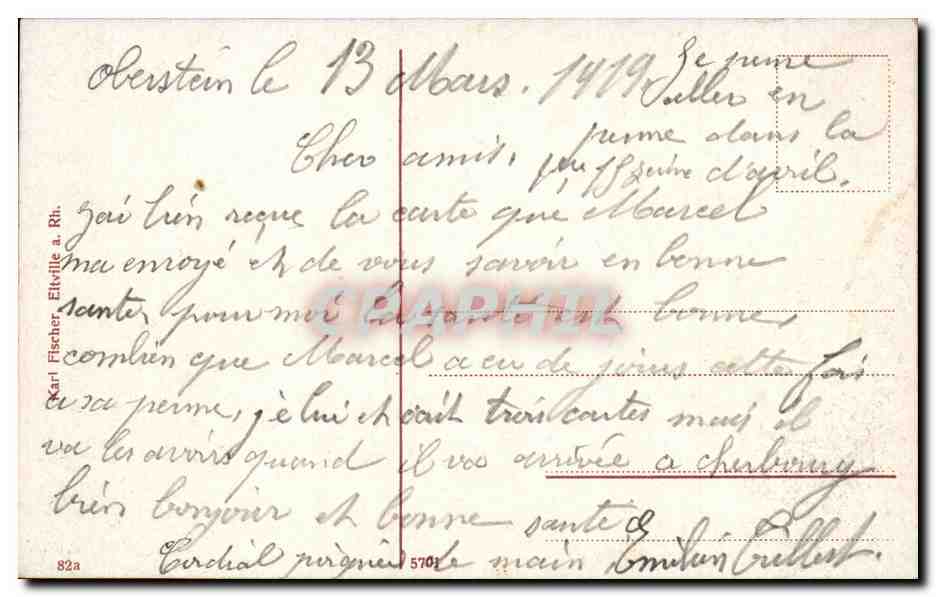 Oberstein le 13 Mars. 1919
Je pense
aller en
perme dans la
1ere 15zeine d'avril.
Cher amis,
j'ai bien reçue la carte que Marcel
ma envoyé et de vous savoir en bonne
santer pour moi la santé est bonne,
combien que Marcel a eu de jours cette fois
a sa perme, jè lui et écrit trois cartes mais il
va les avoirs quand il va arrivée a Cherbourg
bien bonjour et bonne santé
Cordial poignée de main Emilien
Karl Fischer, Eltville a. Rh.
82a
5701
CPAPHIL